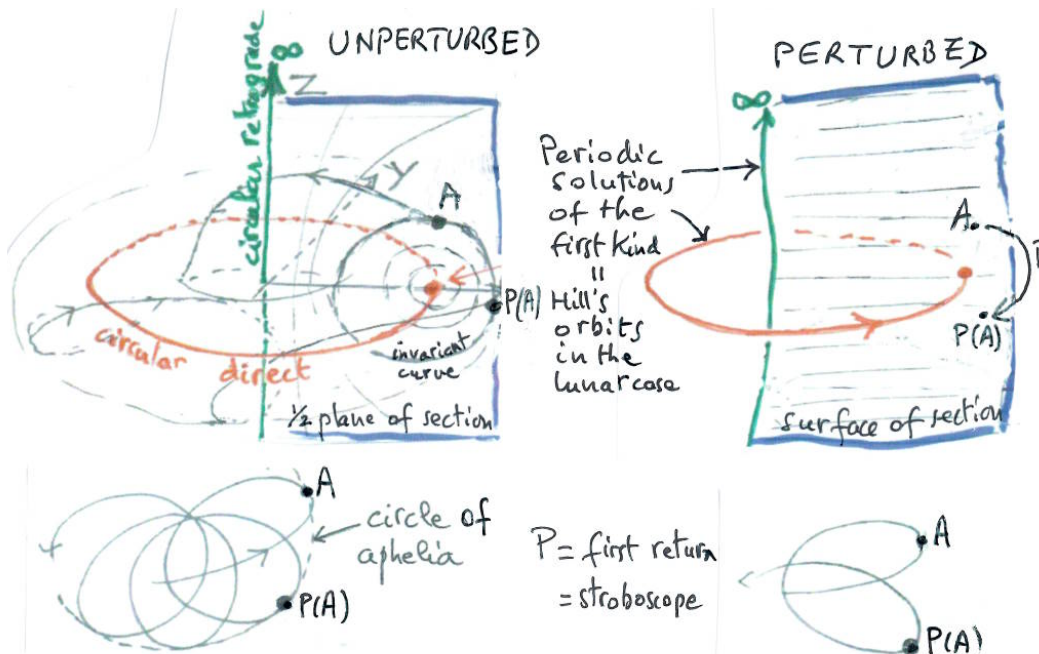 UNPERTURBED
circular retrograde
∞
Z
Y
A
P(A)
circular direct
invariant
curve
1/2 plane of section
Periodic
solutions
of the
first kind
"
Hill's
orbits
in the
lunar case
PERTURBED
∞
A
P
P(A)
surface of section
A
circle of
aphelia
P(A)
P = first return
= stroboscope
A
P(A)